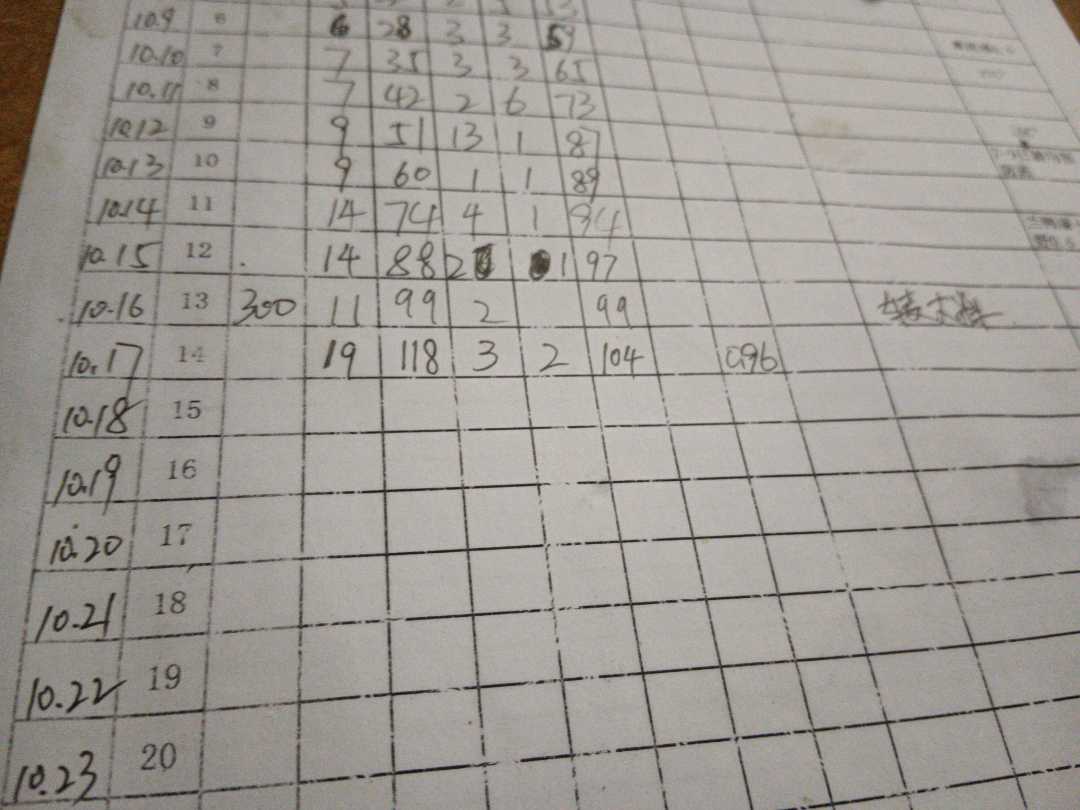 10.9 6 6 28 3 3 59
10.10 7 7 35 3 3 65
10.11 8 7 42 2 6 73
10.12 9 9 51 13 1 87
10.13 10 9 60 1 1 89
10.14 11 14 74 4 1 94
10.15 12 . 14 88 2 1 97
10.16 13 300 11 99 2 99
10.17 14 19 118 3 2 104 0.96
10.18 15
10.19 16
10.20 17
10.21 18
10.22 19
10.23 20